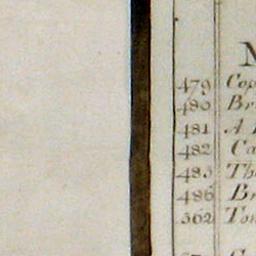 N
479 Cop
480 Br
481 A
482 Ca
485 The
486 Br
562 Ton